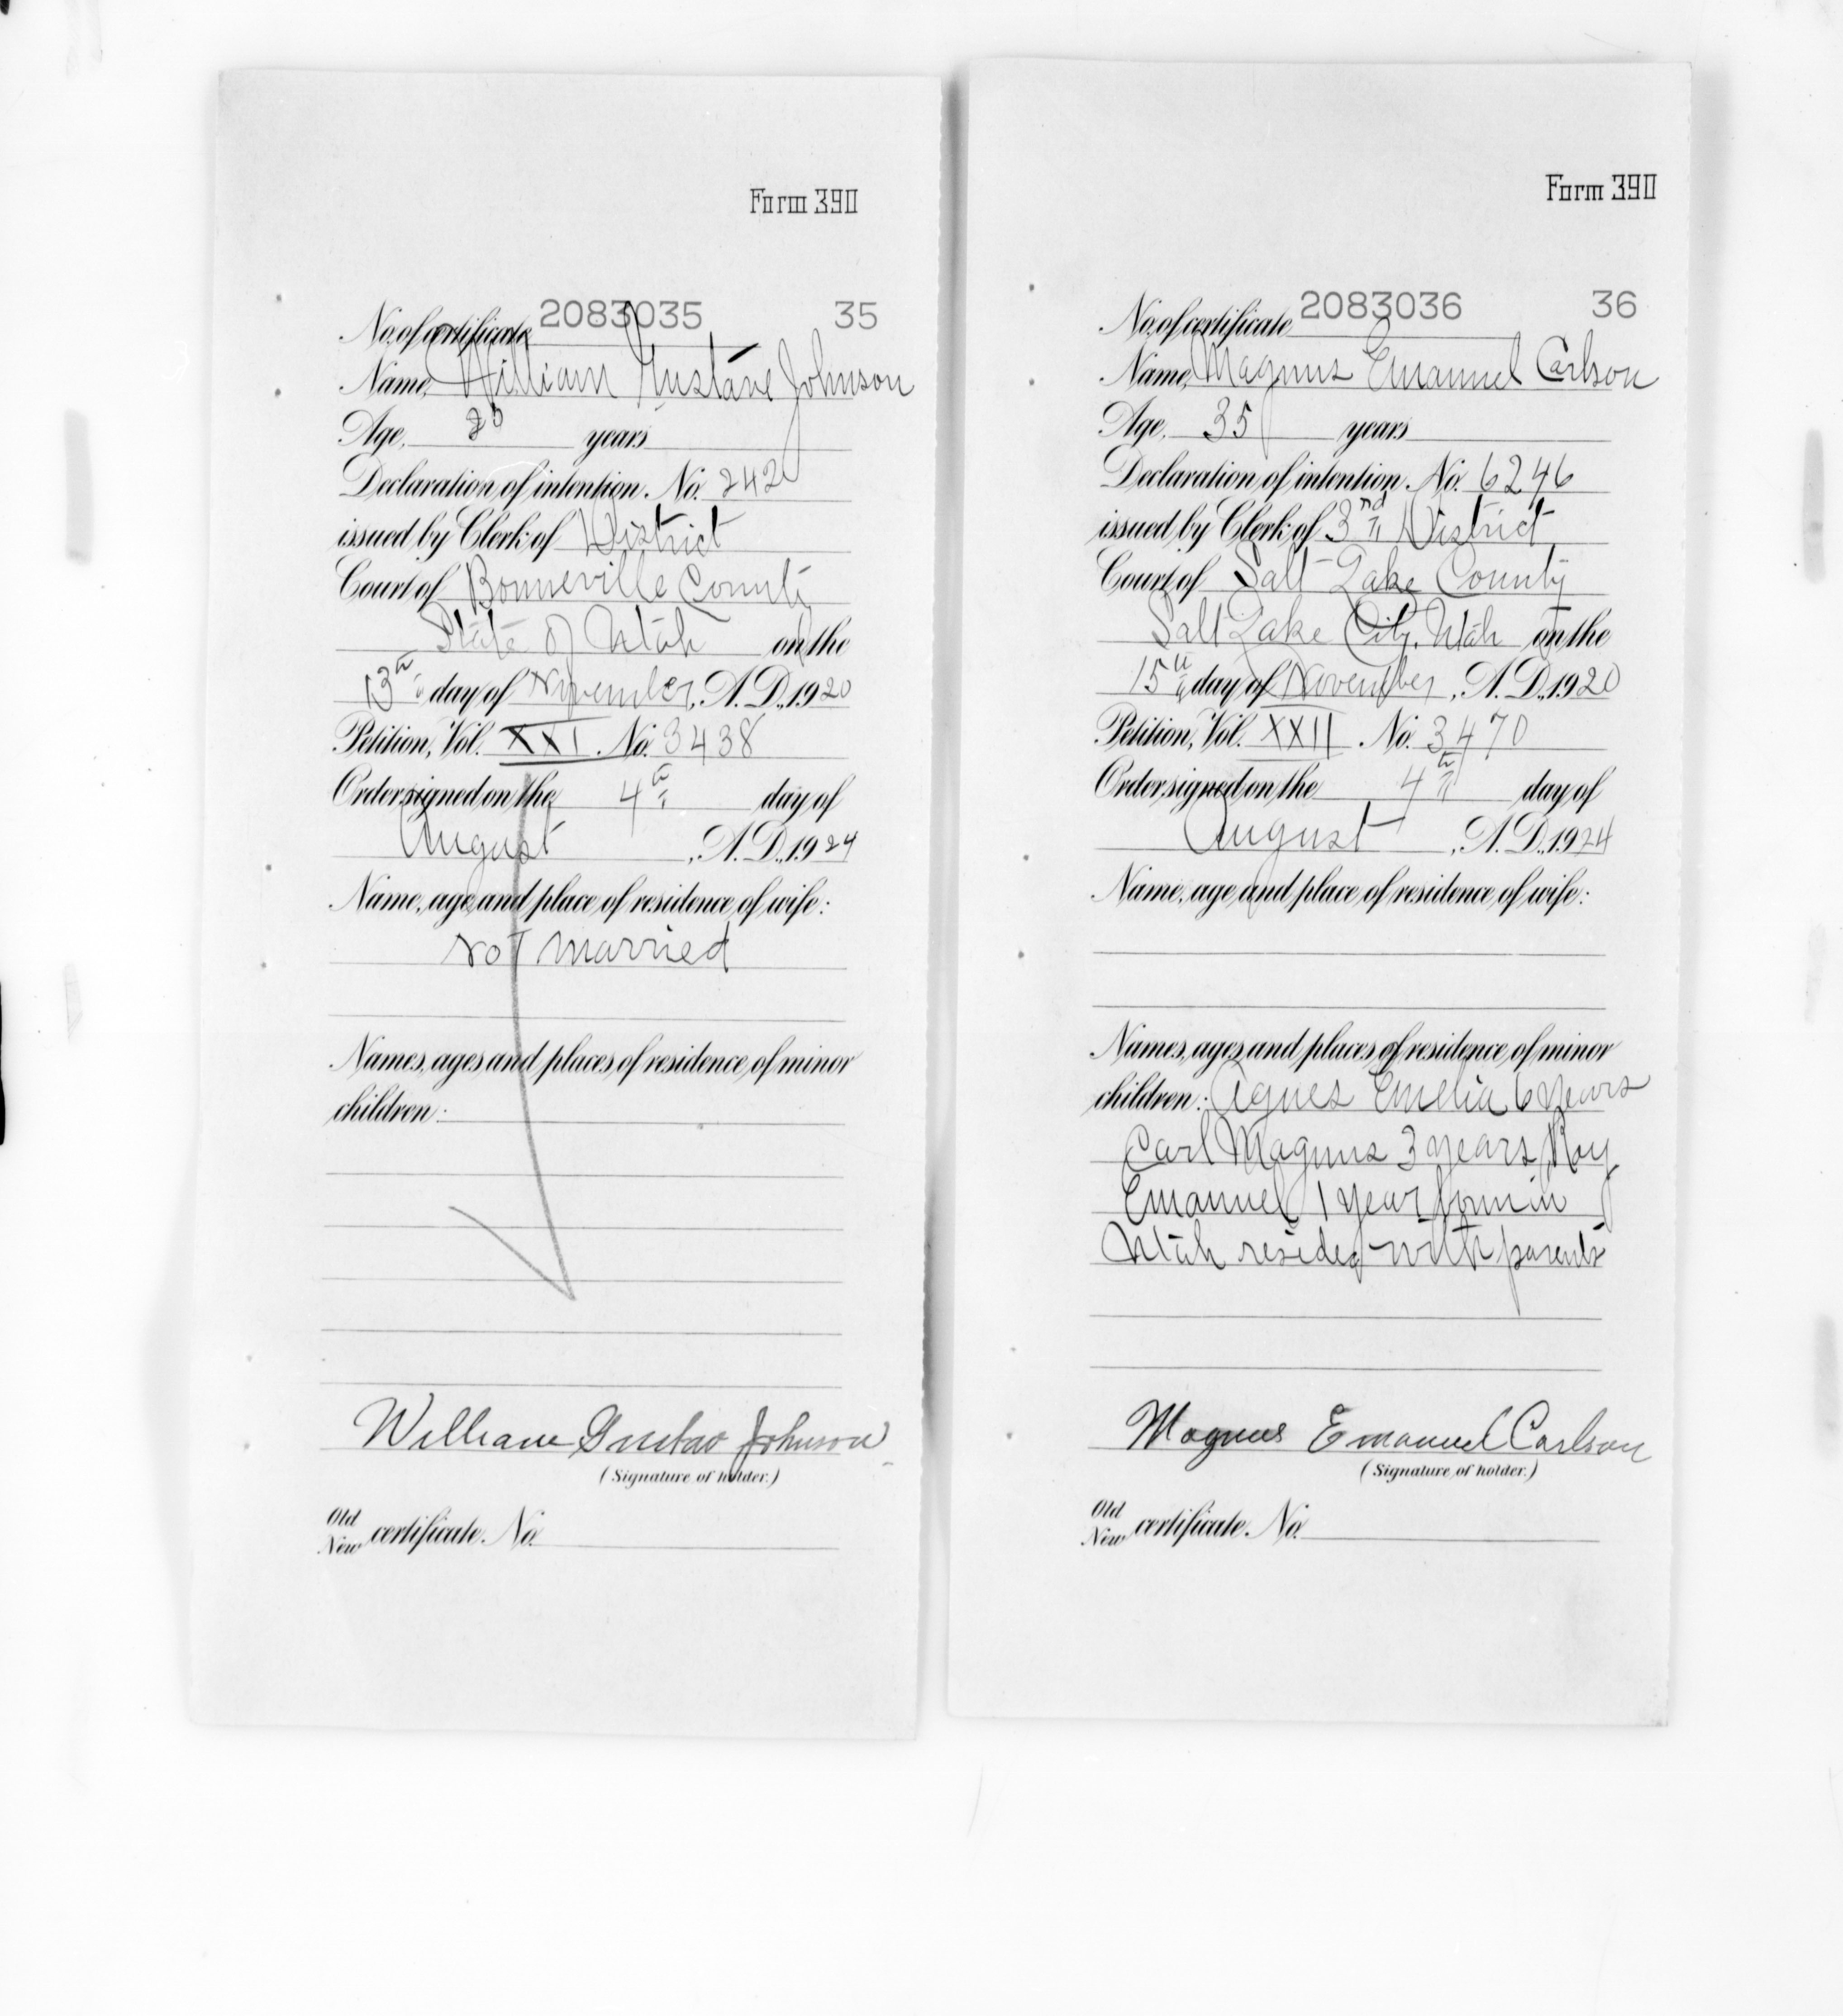 Form 390
No. of certificate 2083035 35
Name, William Gustave Johnson
Age, years
Declaration of intention, No. 242
issued by Clerk of District
Court of Bonneville County
State of Utah on the
13th day of November, A. D., 1920
Petition, Vol. XXI, No. 3438
Order signed on the 4th day of
August, A. D., 1924
Name, age, and place of residence of wife:
not married
Names, ages and places of residence of minor
children:
William Gustav Johnson
(Signature of holder.)
Old
New certificate, No.
Form 390
No. of certificate 2083036 36
Name, Magnus Emanuel Carlson
Age, 35 years
Declaration of intention, No. 6246
issued by Clerk of 3rd District
Court of Salt Lake County
Salt Lake City, Utah on the
15th day of November, A. D., 1920
Petition, Vol. XXII, No. 3470
Order signed on the 4th day of
August, A. D., 1924
Name, age, and place of residence of wife:
Names, ages and places of residence of minor
children: Agnes Emelia 6 years
Carl Magnus 3 years, Roy
Emanuel 1 year born in
Utah resides with parents
Magnus Emanuel Carlson
(Signature of holder.)
Old
New certificate, No.